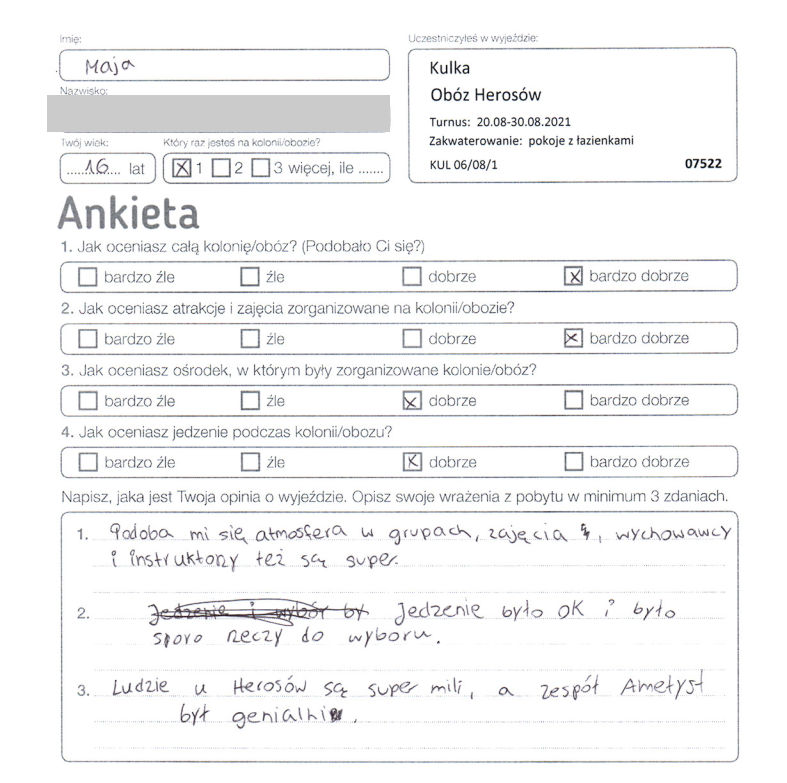 Imię:
Maja
Nazwisko:
Twój wiek:
16 lat
Który raz jesteś na kolonii/obozie?
1 2 3 więcej, ile .......
Uczestniczyłeś w wyjeździe:
Kulka
Obóz Herosów
Turnus: 20.08-30.08.2021
Zakwaterowanie: pokoje z łazienkami
KUL 06/08/1 07522
Ankieta
1. Jak oceniasz całą kolonię/obóz? (Podobało Ci się?)
bardzo źle źle dobrze bardzo dobrze
2. Jak oceniasz atrakcje i zajęcia zorganizowane na kolonii/obozie?
bardzo źle źle dobrze bardzo dobrze
3. Jak oceniasz ośrodek, w którym były zorganizowane kolonie/obóz?
bardzo źle źle dobrze bardzo dobrze
4. Jak oceniasz jedzenie podczas kolonii/obozu?
bardzo źle źle dobrze bardzo dobrze
Napisz, jaka jest Twoja opinia o wyjeździe. Opisz swoje wrażenia z pobytu w minimum 3 zdaniach.
1. Podoba mi się atmosfera w grupach, zajęcia, wychowawcy
i instruktorzy też są super.
2. Jedzenie i wybór by Jedzenie było OK i było
sporo rzeczy do wyboru.
3. Ludzie u Herosów są super mili, a zespół Ametyst
był genialni.